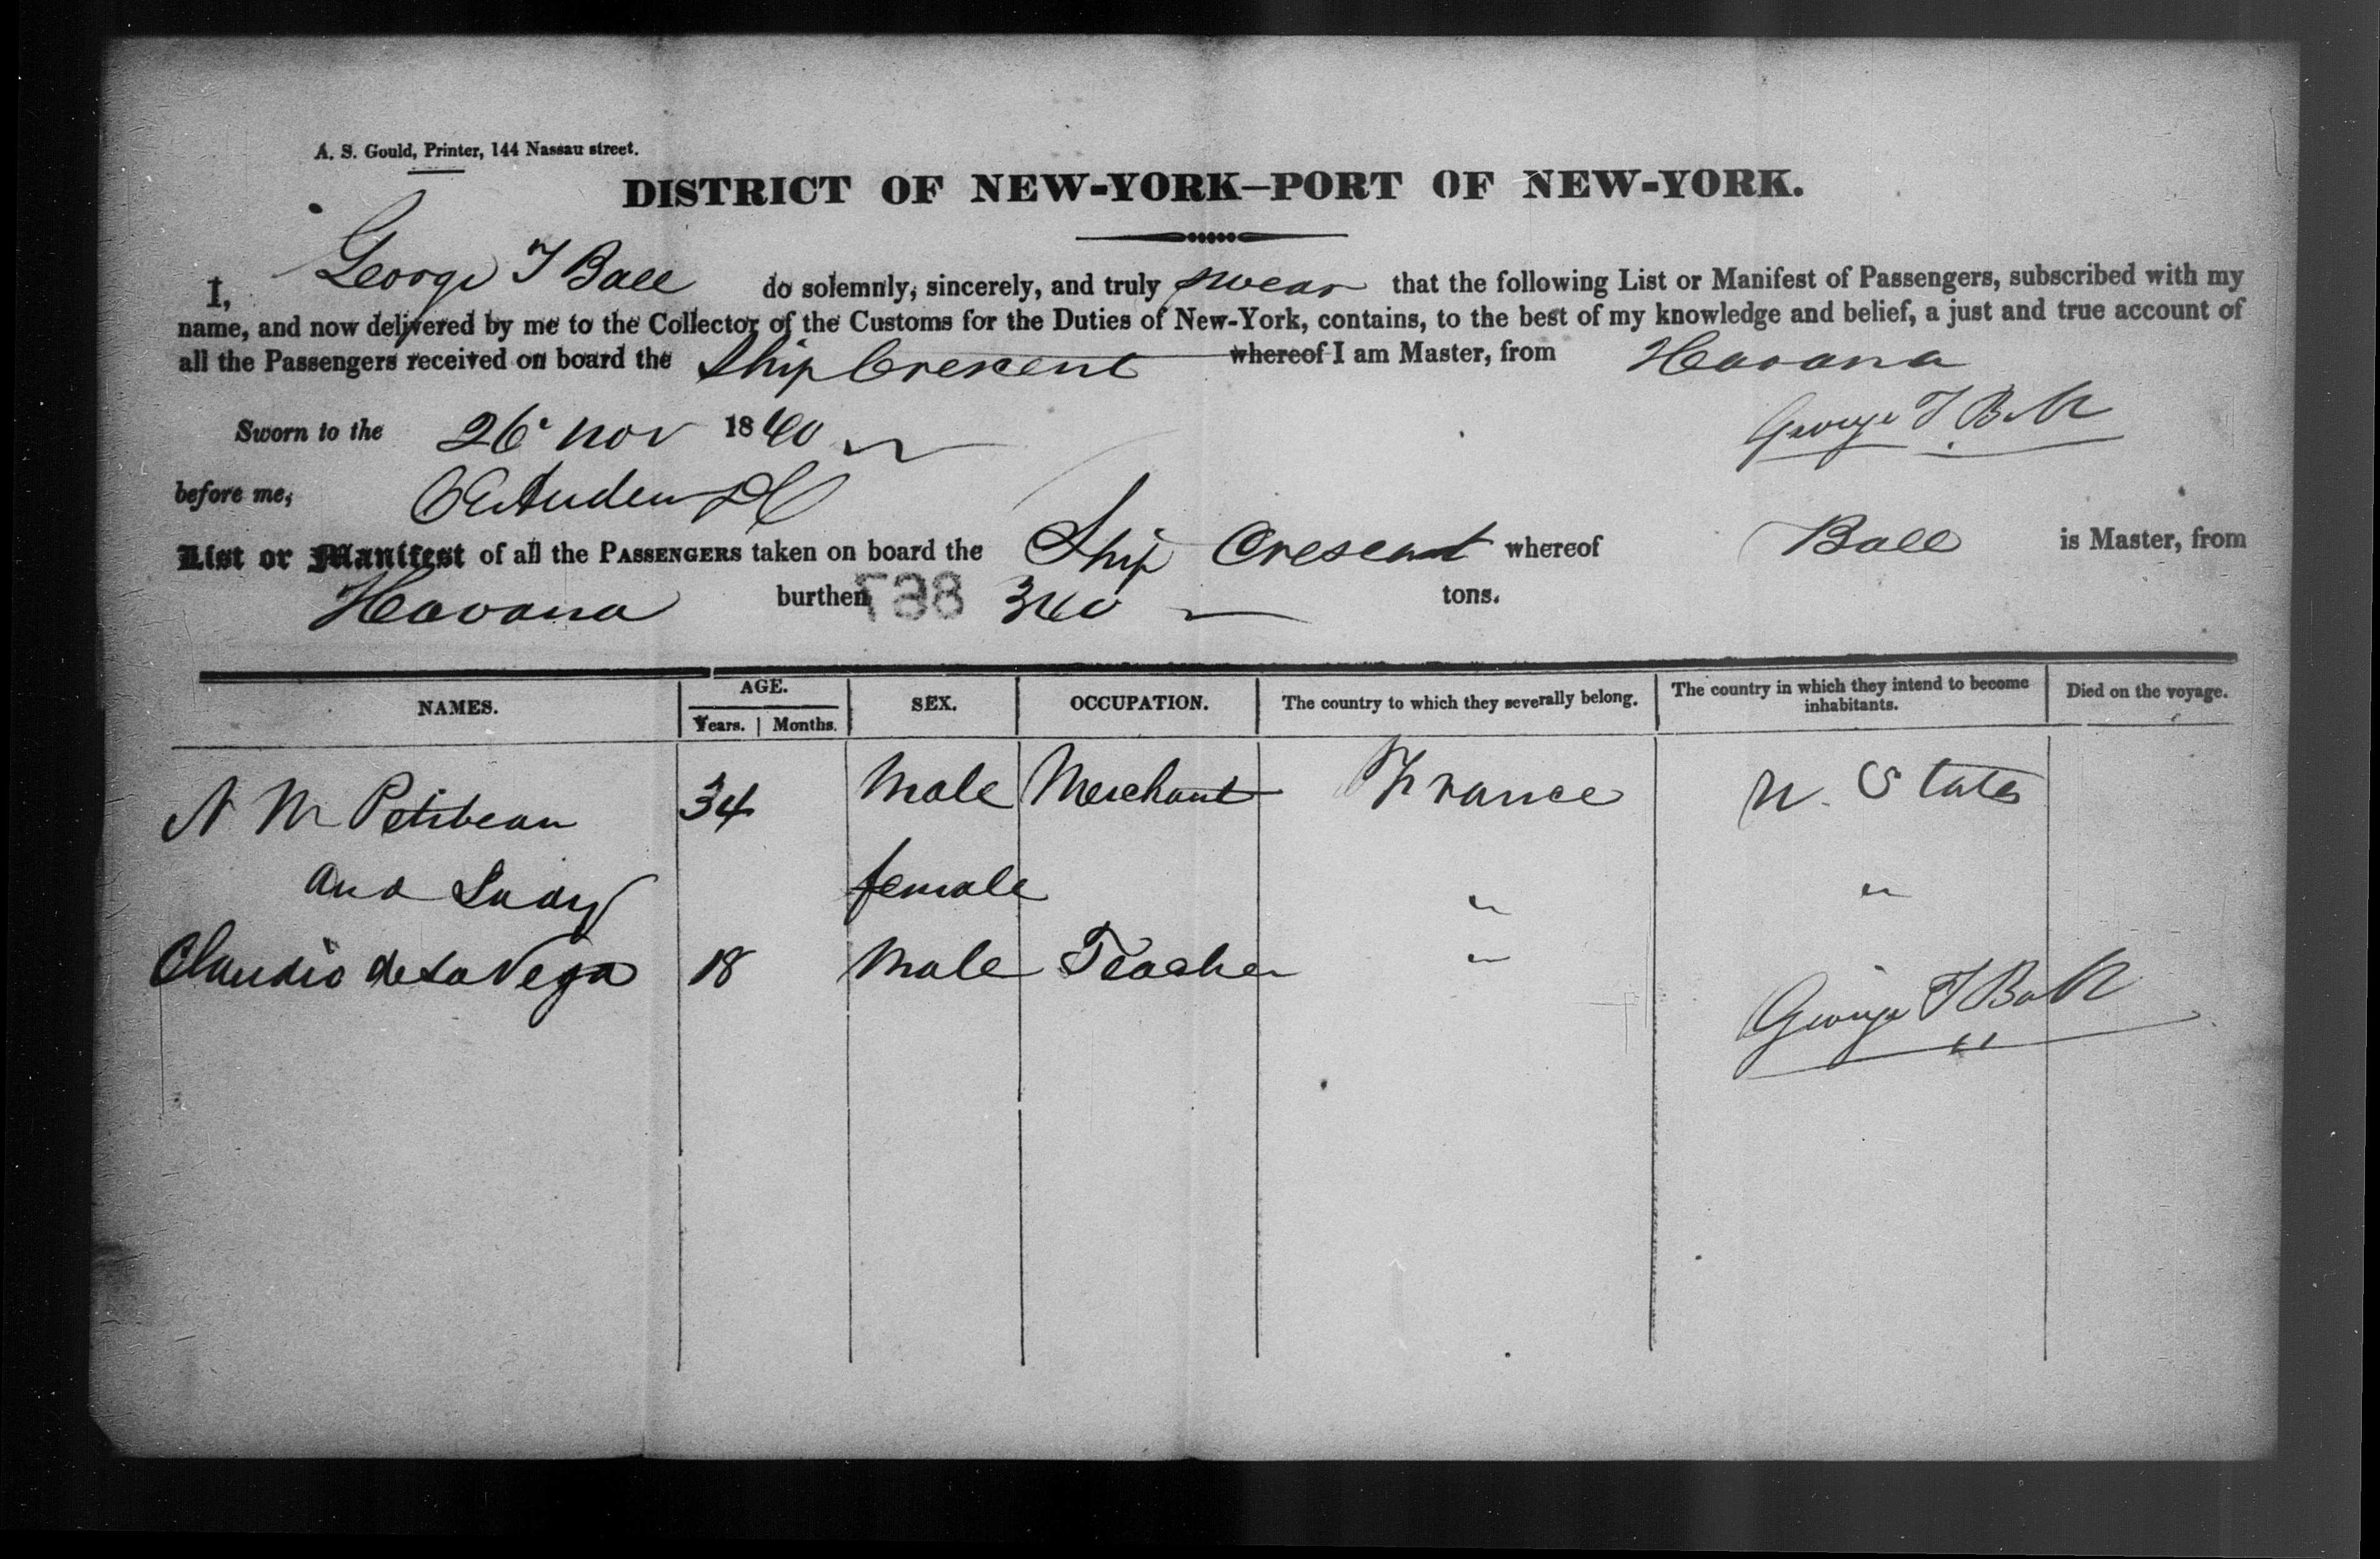 A. S. Gould, Printer, 144 Nassau street.
DISTRICT OF NEW-YORK—PORT OF NEW-YORK.
I, George T Ball do solemnly, sincerely, and truly swear that the following List or Manifest of Passengers, subscribed with my
name, and now delivered by me to the Collector of the Customs for the Duties of New-York, contains, to the best of my knowledge and belief, a just and true account of
all the Passengers received on board the Ship Crescent whereof I am Master, from Havana
Sworn to the 26 Nov 1840 George T Ball
before me,
List or Manifest of all the PASSENGERS taken on board the Ship Crescent whereof Ball is Master, from
Havana burthen 340 tons.
NAMES. AGE. SEX. OCCUPATION. The country to which they severally belong. The country in which they intend to become inhabitants. Died on the voyage.
Years. Months.
N M Petibeau 34 Male Merchant France U. States
and Lady female " "
Claudio de La Vega 18 Male Teacher "
George T Ball